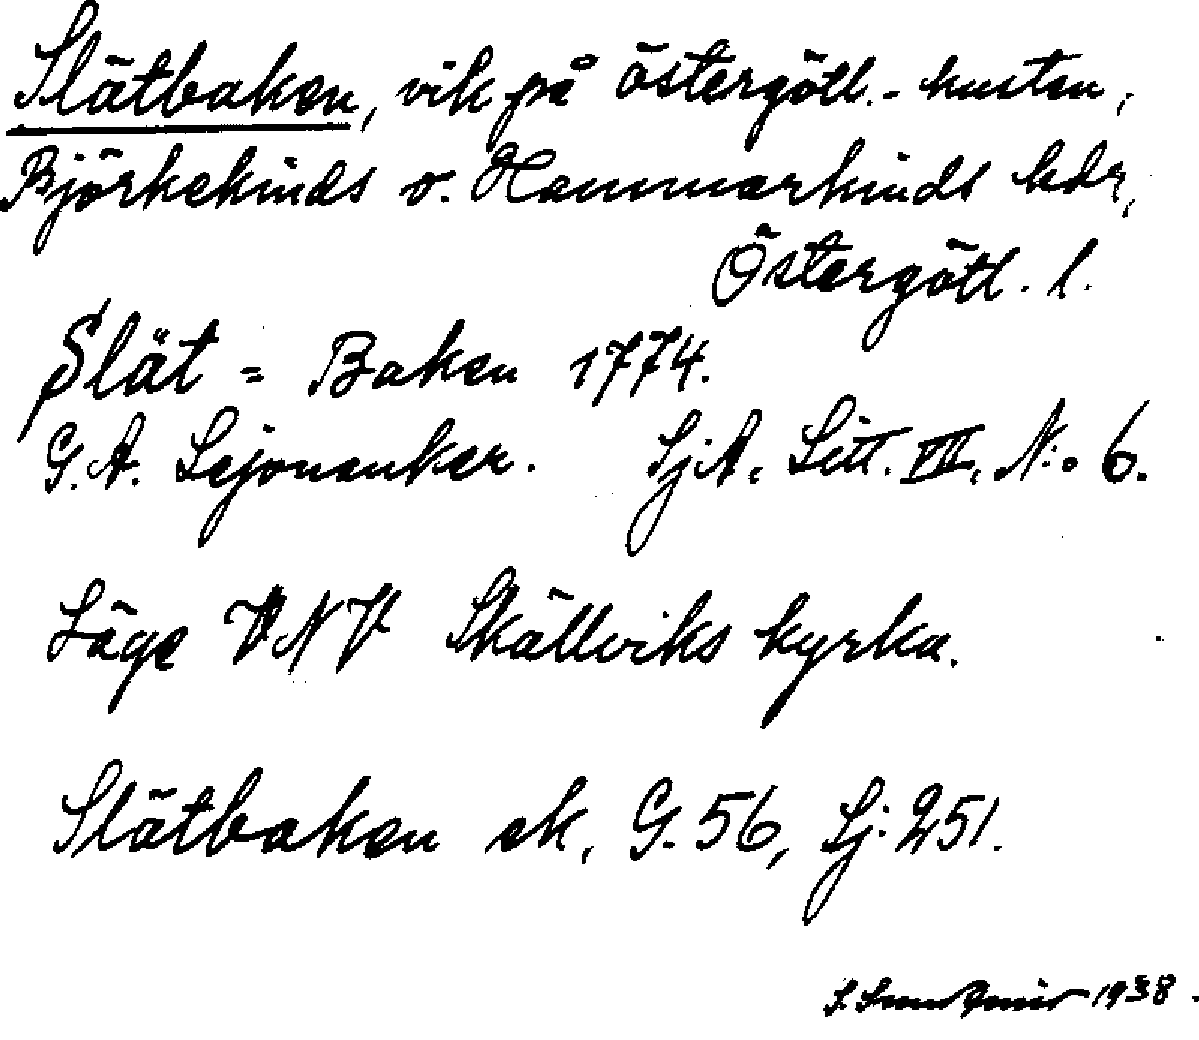 Slätbaken, vik på östergötl.-kusten,
Björkekinds o. Hammarkinds hdr,
Östergötl. l.
Slät = Baken 1774.
G. A. Lejonanker. SjA, Litt. VII, N:o 6.
Läge VNV Skällviks kyrka.
Slätbaken ek, G. 56, Sj: 251.
1938.